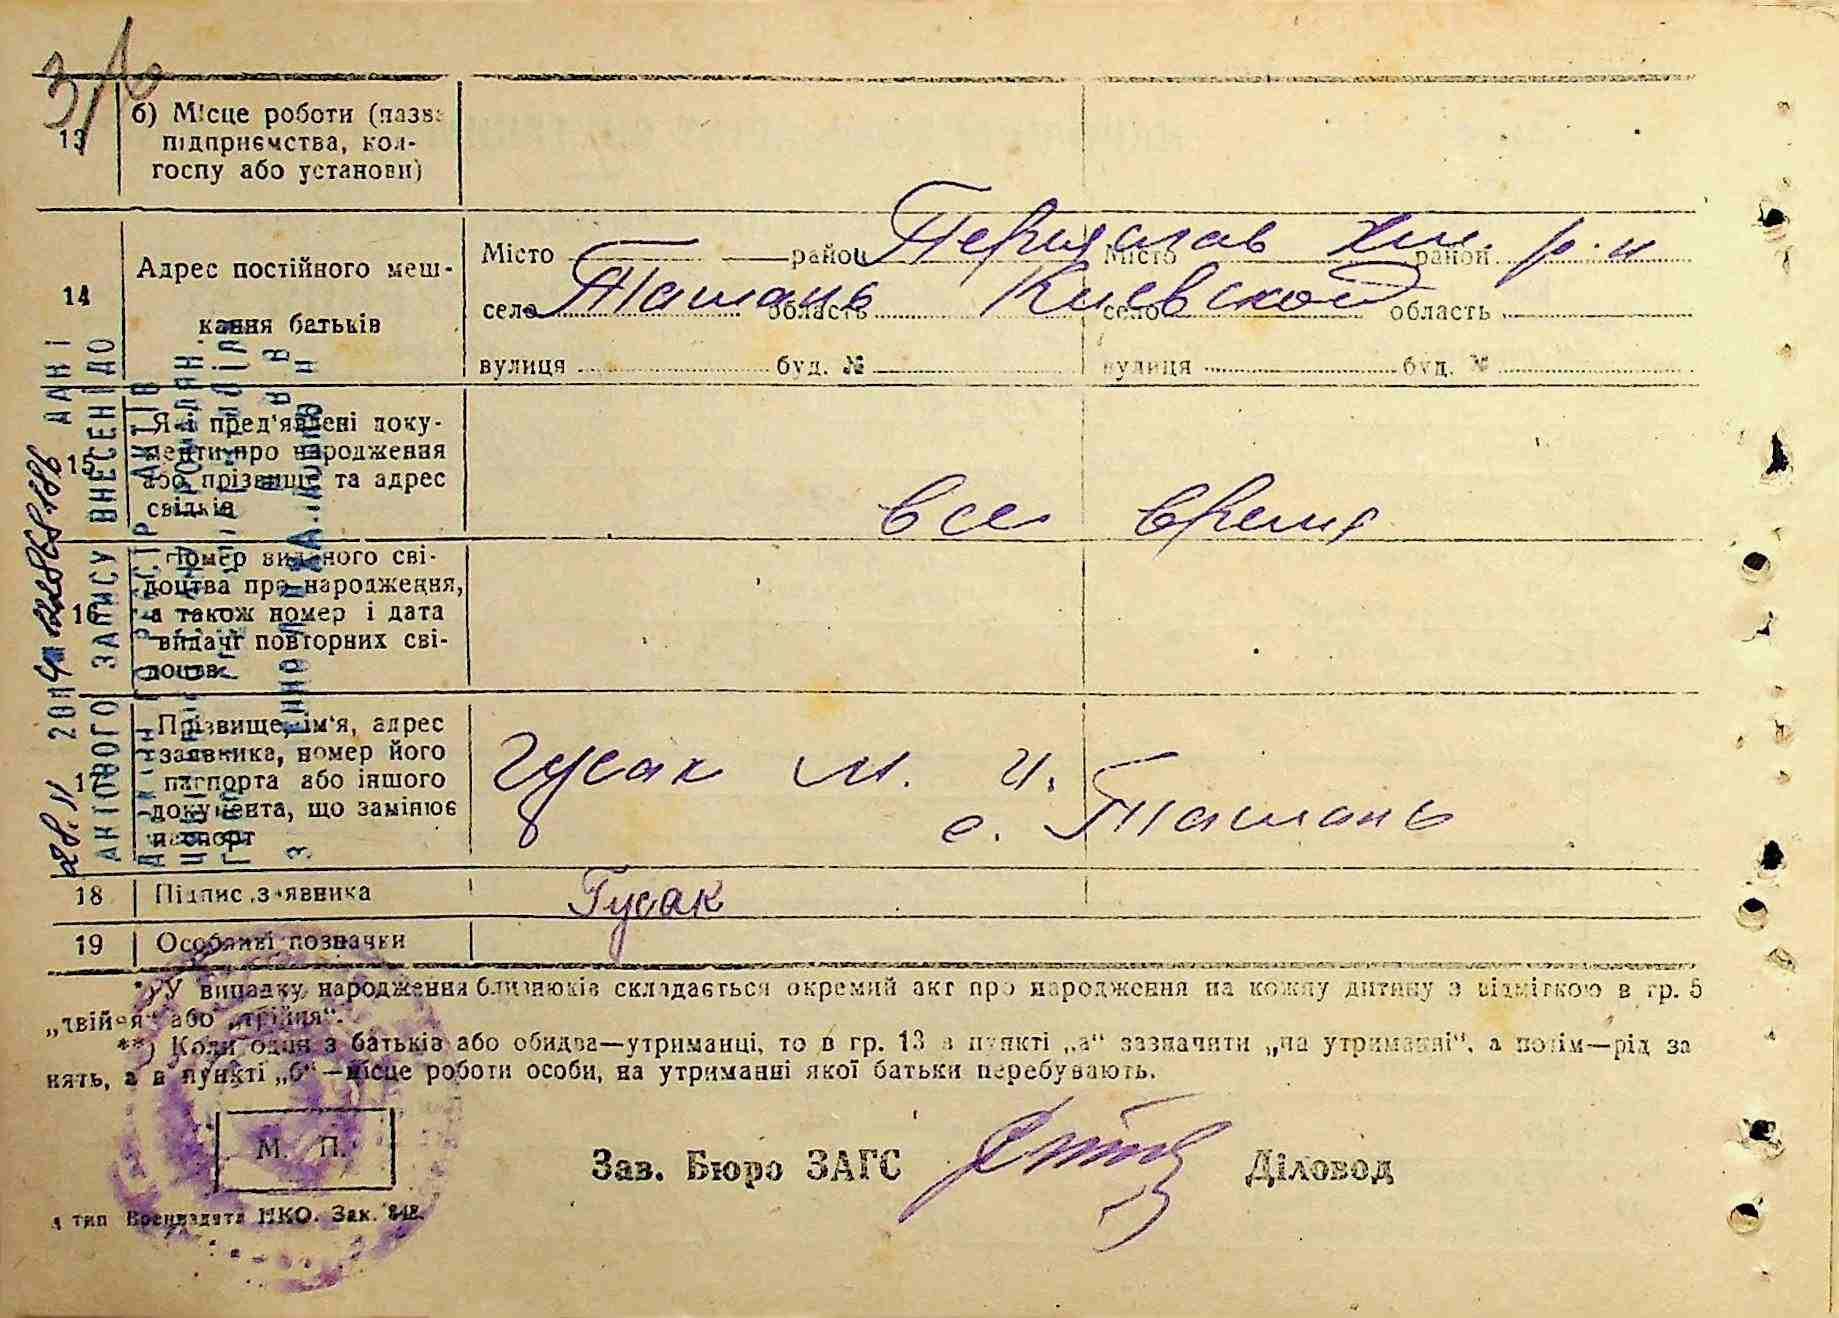 13
б) Місце роботи (назва
підприємства, кол-
госпу або установи)
14
Адрес постійного меш-
кання батьків
Місто район Переяслав Хм. р-н Місто район
село Ташань область Киевской село область
вулиця буд. № вулиця буд. №
15
Які пред'явлені доку-
менти про народження
або прізвище та адрес
свідків
все время
16
Номер виданого сві-
доцтва про народження,
а також номер і дата
видачі повторних сві-
доцтв
17
Прізвище, ім'я, адрес
заявника, номер його
паспорта або іншого
документа, що замінює
паспорт
Гусак М. И.
с. Ташань
18 Підпис заявника Гусак
19 Особливі позначки
*) У випадку народження близнюків складається окремий акт про народження на кожну дитину з відміткою в гр. 5
„двійня“ або „трійня“.
**) Коли один з батьків або обидва—утриманці, то в гр. 13 в пункті „а“ зазначити „на утриманні“, а потім—рід за
нять, а в пункті „б“—місце роботи особи, на утриманні якої батьки перебувають.
М. П.
Зав. Бюро ЗАГС Діловод
тип Воениздата НКО. Зак. 848.
ДАНІ
АКТОВОГО ЗАПИСУ ВНЕСЕНІ ДО